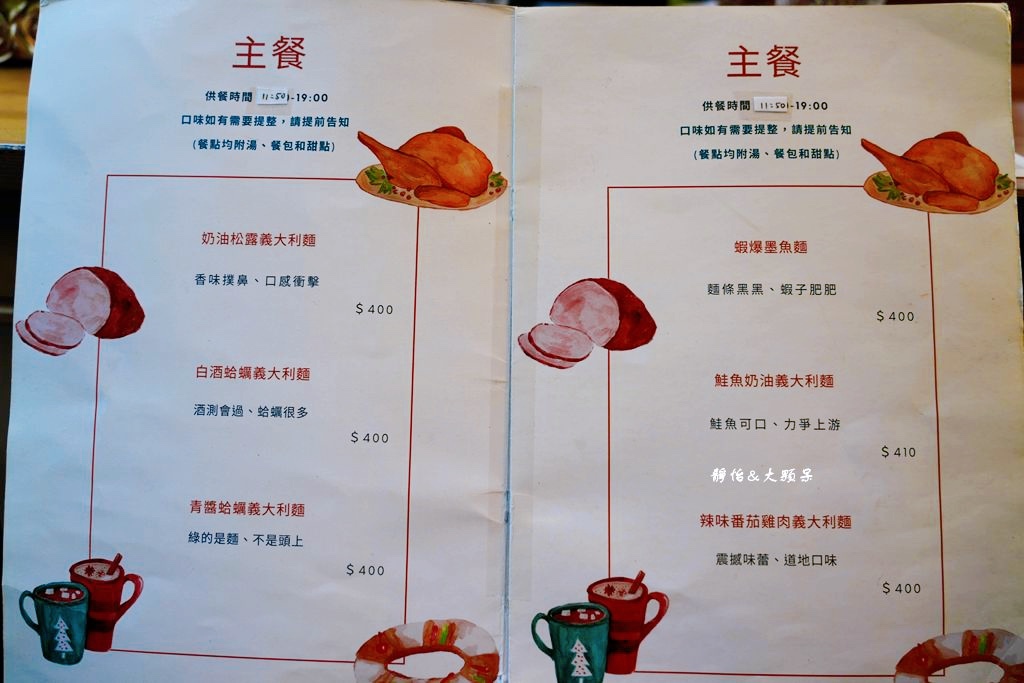 主餐
供餐時間 11:50-19:00
口味如有需要提整，請提前告知
(餐點均附湯、餐包和甜點)
奶油松露義大利麵
香味撲鼻、口感衝擊
$400
白酒蛤蠣義大利麵
酒測會過、蛤蠣很多
$400
青醬蛤蠣義大利麵
綠的是麵、不是頭上
$400
主餐
供餐時間 11:50-19:00
口味如有需要提整，請提前告知
(餐點均附湯、餐包和甜點)
蝦爆墨魚麵
麵條黑黑、蝦子肥肥
$400
鮭魚奶油義大利麵
鮭魚可口、力爭上游
$410
靜怡&大顆呆
辣味番茄雞肉義大利麵
震撼味蕾、道地口味
$400